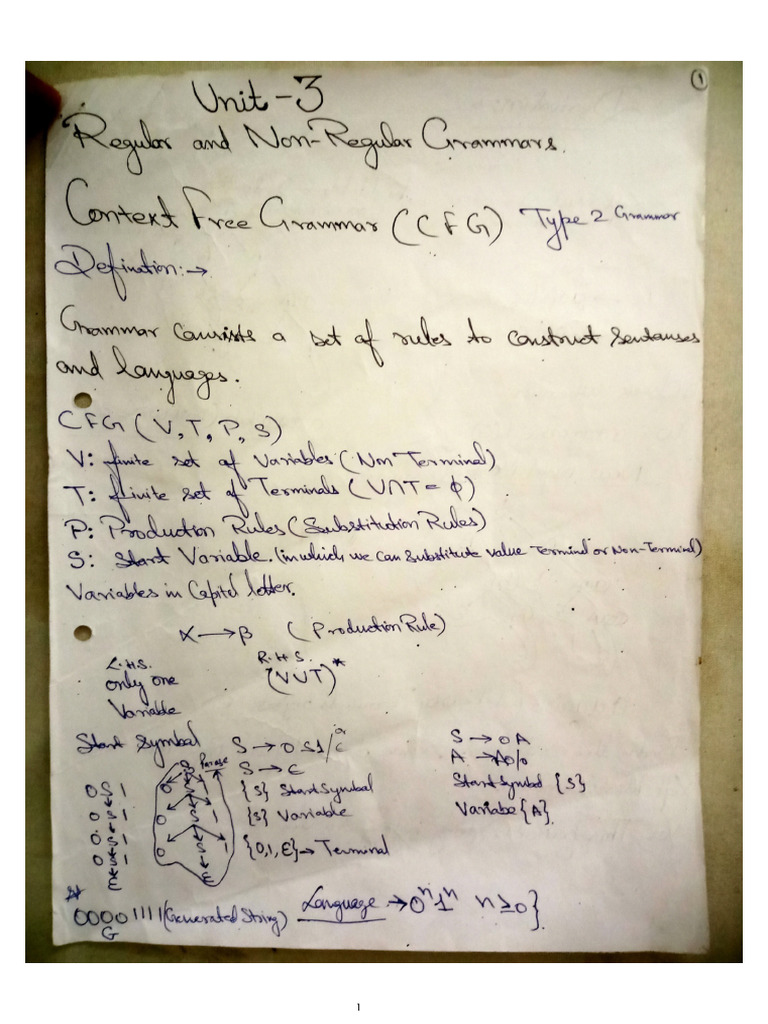 1
Unit-3
Regular and Non-Regular Grammars.
Context Free Grammar (CFG) Type 2 Grammar
Defination:→
Grammar consists a set of rules to construct sentanses
and languages.
CFG (V, T, P, S)
V: finite set of variables (Non Terminal)
T: finite set of Terminals (V∩T = ϕ)
P: Production Rules (Substitution Rules)
S: Start Variable. (in which we can substitute value Terminal or Non-Terminal)
Variables in Capital letter.
α → β (Production Rule)
L.H.S. R.H.S.
only one (V∪T)*
Variable
Start Symbol S → 0S1/ε S → 0A
Parase S → ε A →
{S} Start Symbol Start Symbol {S}
{S} Variable Variabe {A}
{0,1,ε} → Terminal
0 S 1
0 S 1
0 S 1
0 S 1
ε
00001111 (Generated String) Language → 0ⁿ1ⁿ n≥0}
G
1